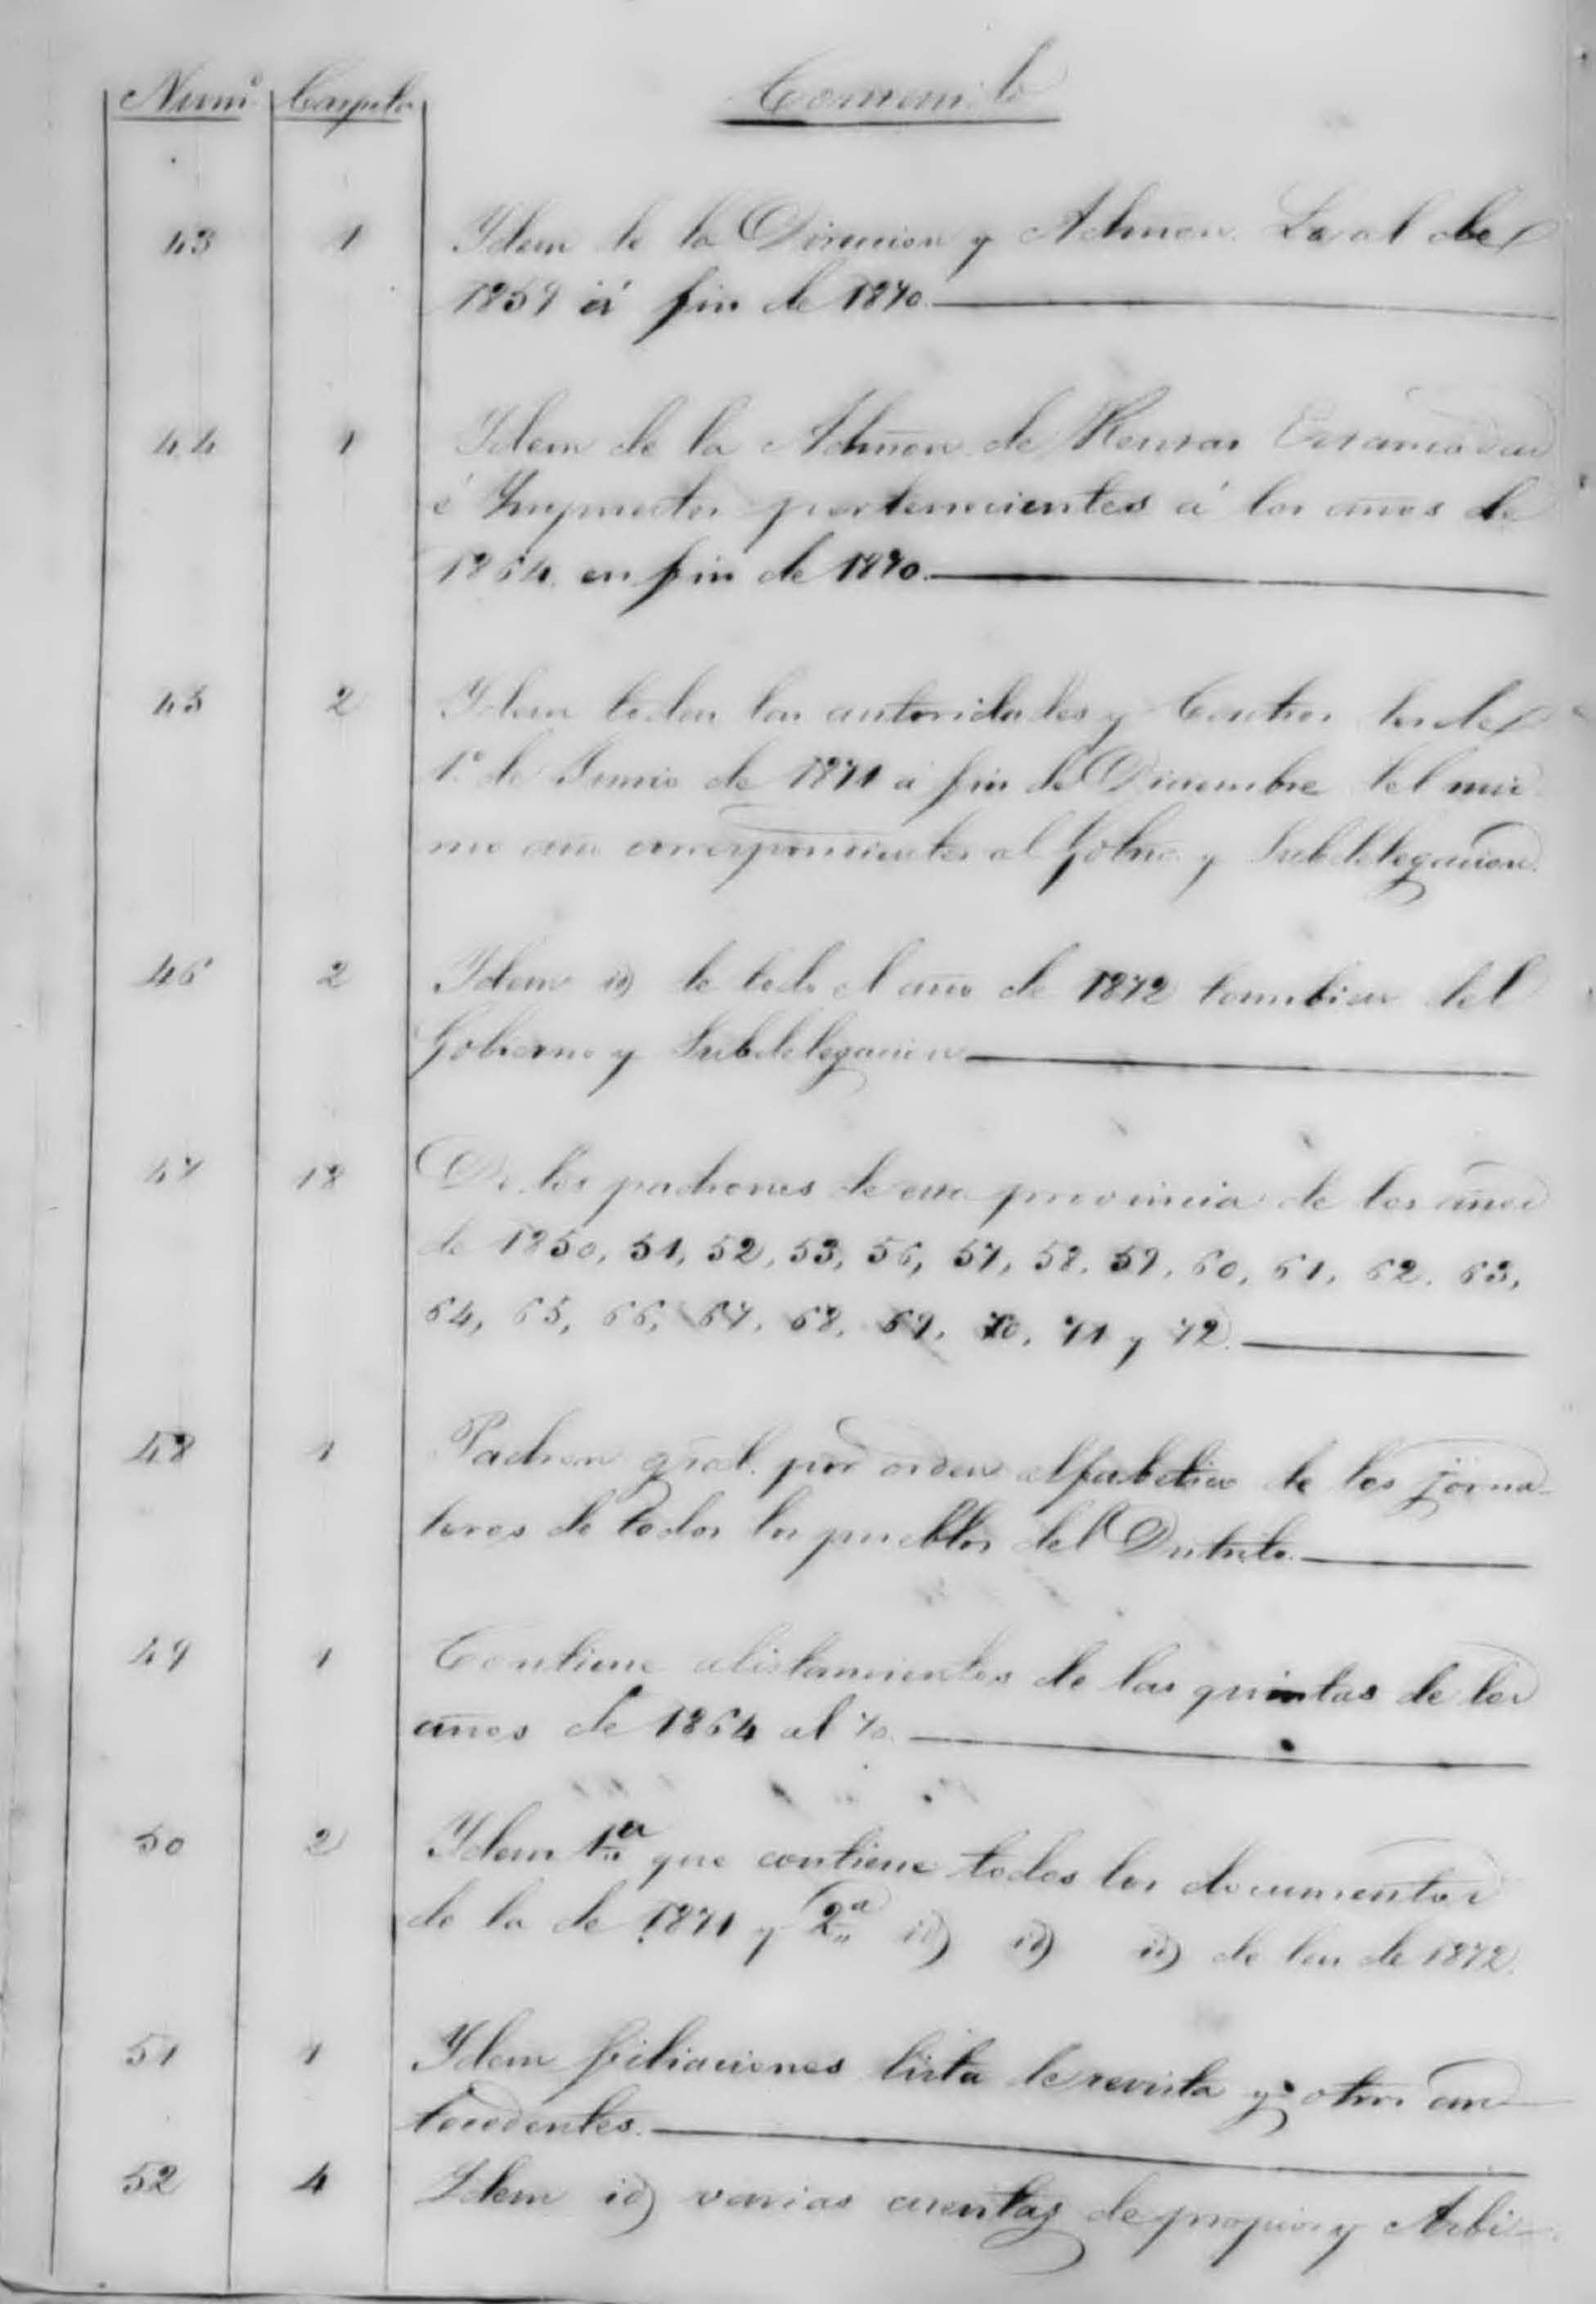 Numº Carpetas Contenido
43 1 Ydem de la Direccion y Admon. Local desde
1859 á fin de 1870.
44 1 Ydem de la Admon. de Rentas Estancadas
é Impuestos pertenecientes á los años de
1864 en fin de 1870.
45 2 Ydem todas las autoridades y Centros desde
1º de Junio de 1871 á fin de Diciembre del mis
mo año correspondientes al Gobno. y Subdelegacion.
46 2 Ydem id de todo el año de 1872 tambien del
Gobierno y Subdelegacion
47 18 De los padrones de esta provincia de los años
de 1850, 51, 52, 53, 56, 57, 58, 59, 60, 61, 62, 63,
64, 65, 66, 67, 68, 69, 70, 71 y 72.
48 1 Padron gral. por orden alfabetico de los jorna-
leros de todos los pueblos del Distrito.
49 1 Contiene alistamientos de las quintas de los
años de 1864 al 70.
50 2 Ydem 1ª que contiene todos los documentos
de la de 1871 y 2ª id id id de los de 1872.
51 1 Ydem filiaciones lista de revista y otros an
tecedentes.
52 4 Ydem id varias cuentas de propios y Arbi-